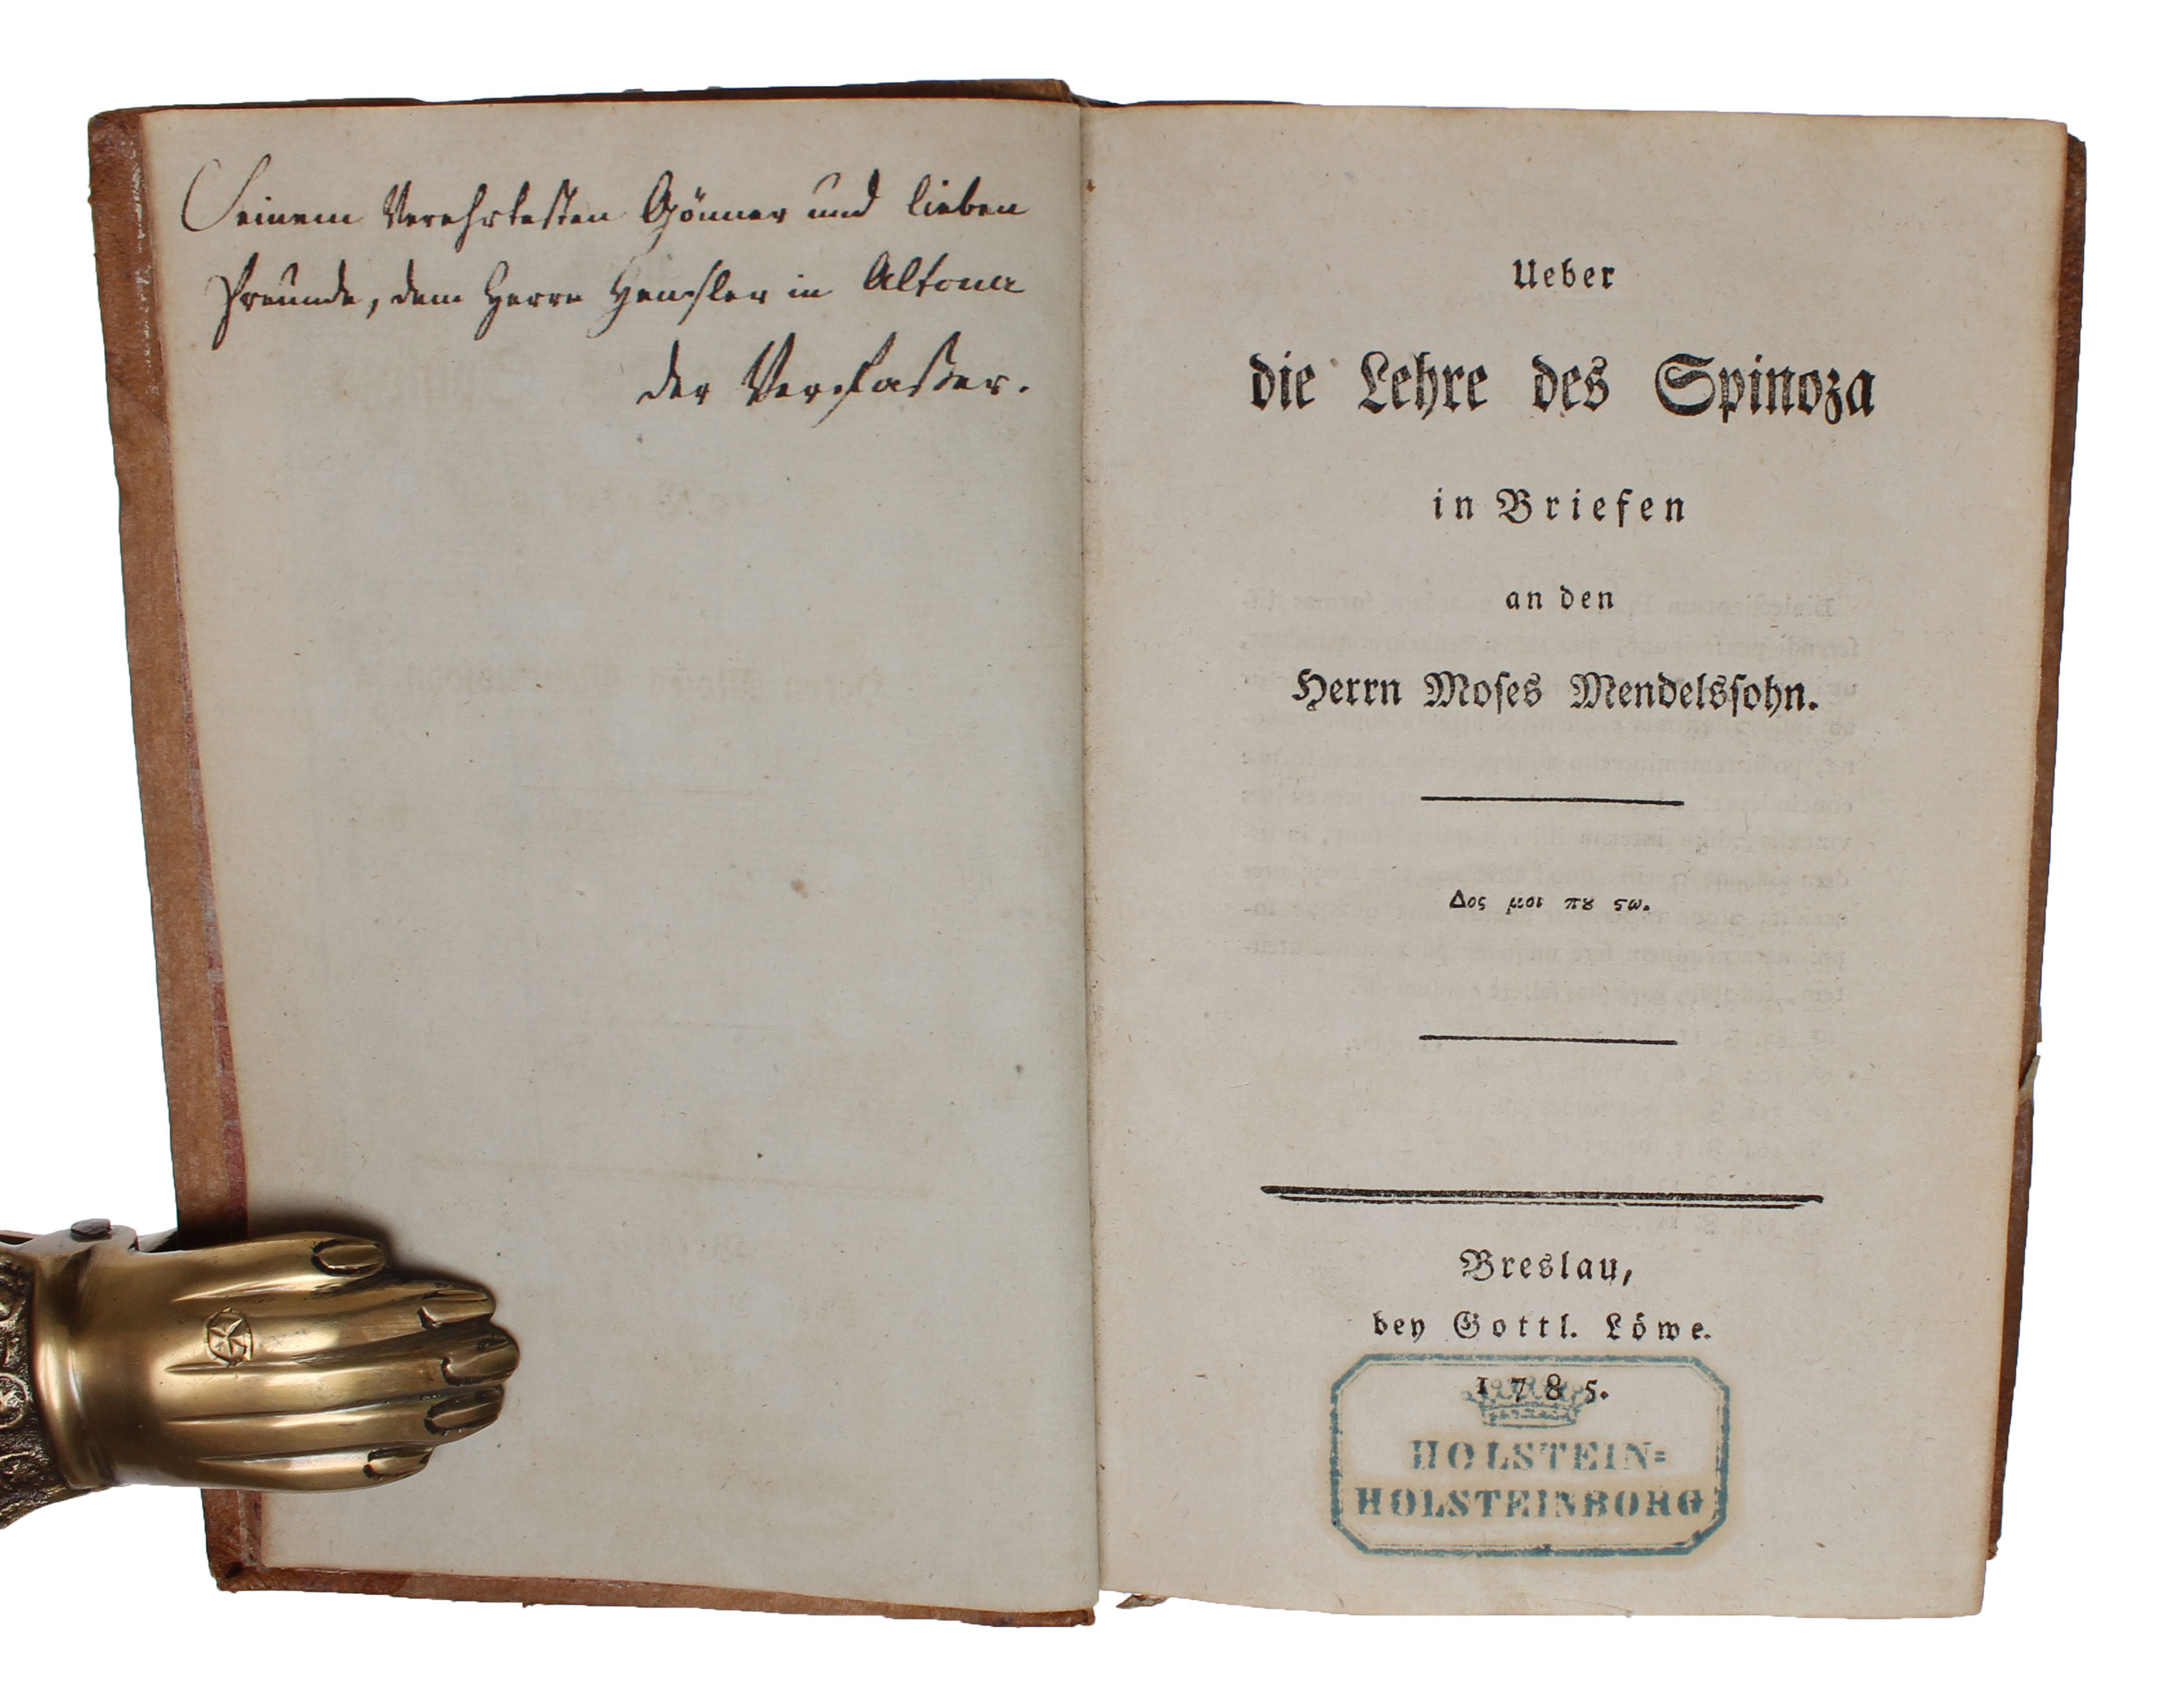 Seinem Verehrtesten Gönner und lieben
Freunde, dem Herrn Hensler in Altona
der Verfaßer.
Ueber
die Lehre des Spinoza
in Briefen
an den
Herrn Moſes Mendelsſohn.
Δος μοι πȣ ϛω.
Breslau,
bey Gottl. Löwe.
1785.
HOLSTEIN=
HOLSTEINBORG